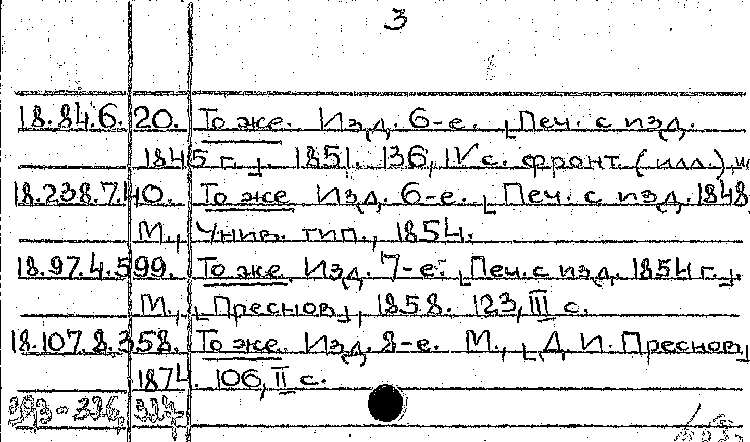 3
18.84.6.20. То же. Изд. 6-е. [Печ. с изд.
1845 г.]. 1851. 136, IV с. фронт. (илл.), и
18.238.7.40. То же. Изд. 6-е. [Печ. с изд. 1848
М., Унив. тип., 1854.
18.97.4.599. То же. Изд. 7-е. [Печ. с изд. 1854 г.].
М., [Преснов], 1858. 123, III с.
18.107.8.358. То же. Изд. 8-е. М., [Д. И. Преснов]
1874. 106, II с.
293-326, 327